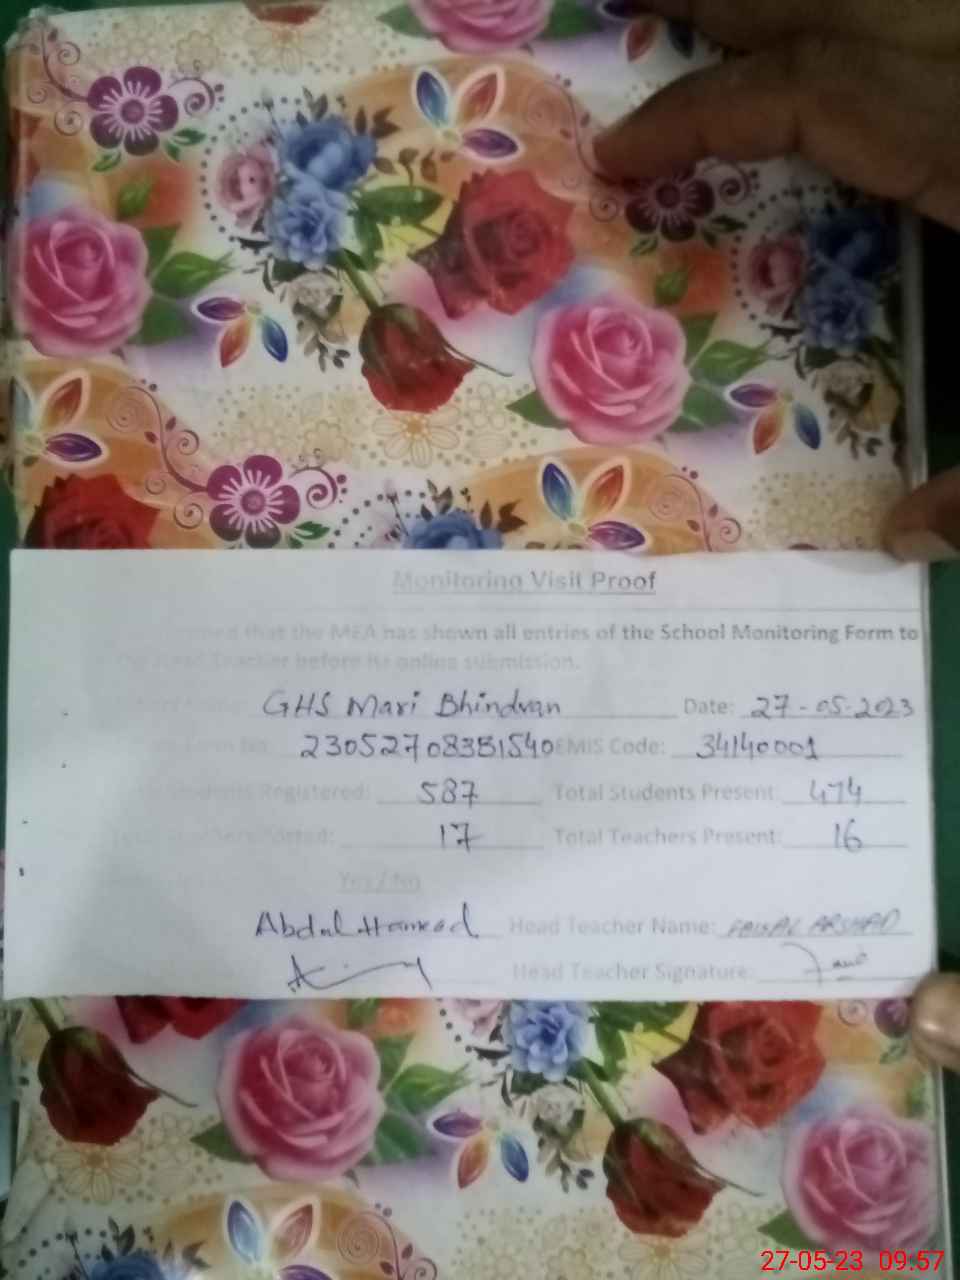 Monitoring Visit Proof
that the MEA has shown all entries of the School Monitoring Form to
Head Teacher before its online submission.
GHS Mari Bhindran Date: 27-05-2023
23052708381540 EMIS Code: 34140001
Students Registered: 587 Total Students Present: 474
17 Total Teachers Present: 16
Yes / No
Abdul Hameed Head Teacher Name: FAISAL ARSHAD
Head Teacher Signature:
27-05-23 09:57